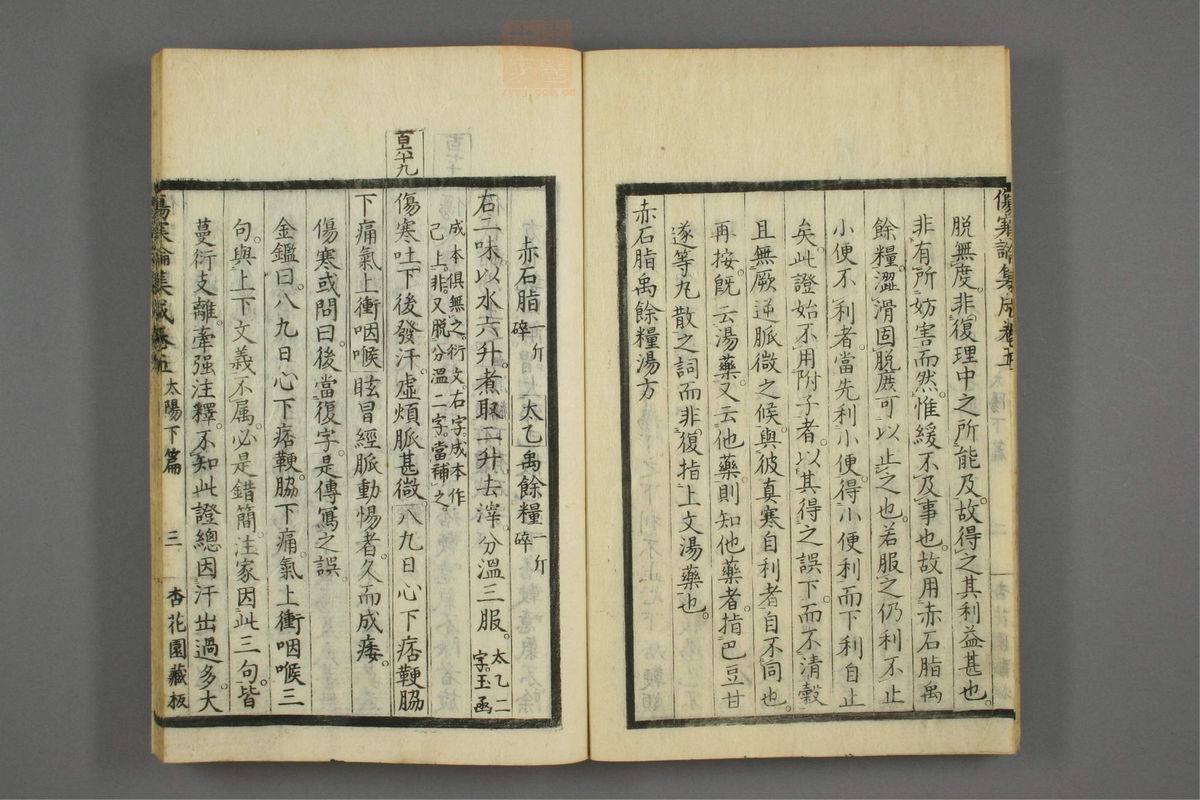 傷寒論集成卷五
脫無度。非復理中之所能及。故得之其利益甚也。
非有所妨害而然。惟緩不及事也。故用赤石脂禹
餘糧。澀滑固脫。庶可以止之也。若服之仍利不止
小便不利者。當先利小便。得小便利而下利自止
矣。此證始不用附子者。以其得之誤下。而不清穀
且無厥逆脈微之候。與彼真寒自利者。自不同也。
再按。既云湯藥。又云他藥。則知他藥者。指巴豆甘
遂等丸散之詞。而非復指上文湯藥也。
赤石脂禹餘糧湯方
赤石脂一斤碎 太乙禹餘糧一斤碎
右二味。以水六升。煮取二升去滓。分溫三服。太乙二字。玉函
成本俱無之。衍文。右字。成本作
己上。非。又脫分溫二字。當補之。
百六十九
傷寒吐下後發汗。虛煩脈甚微。八九日心下痞鞕。脇
下痛。氣上衝咽喉。眩冒經脈動惕者。久而成痿。
傷寒或問曰。後當復字。是傳寫之誤。
金鑑曰。八九日心下痞鞕。脇下痛。氣上衝咽喉三
句。與上下文義不属。必是錯簡。注家因此三句。皆
蔓衍支離。牽强注釋。不知此證總因汗出過多。大
傷寒論集成卷五 太陽下篇 三 杏花園藏板